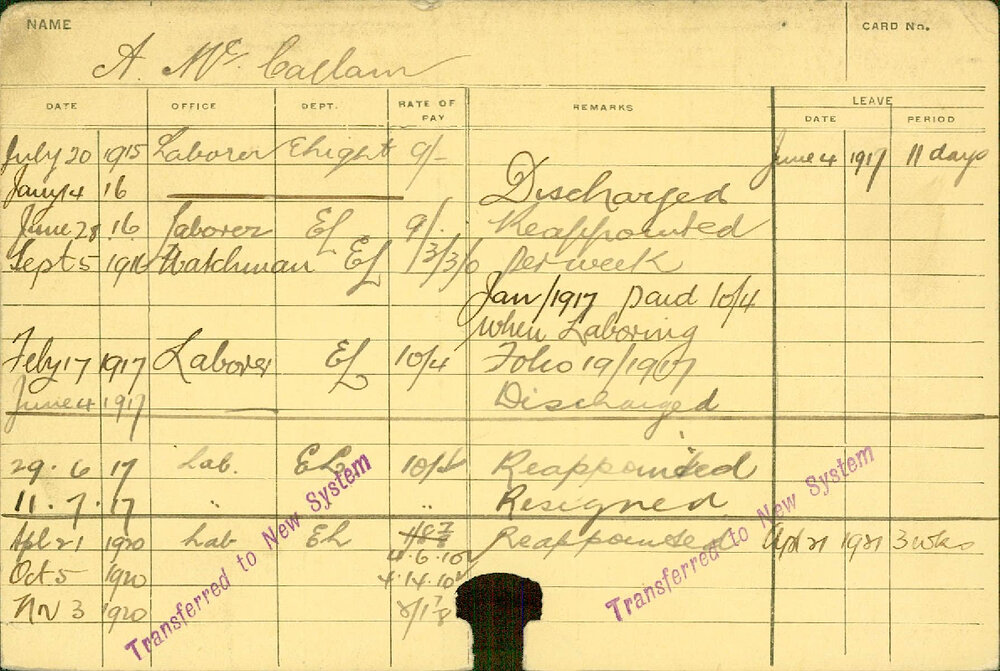 NAME
CARD No.
A. Mc. Callam
DATE OFFICE DEPT. RATE OF PAY REMARKS LEAVE
DATE PERIOD
July 20 1915 Laborer Elight 9/- June 4 1917 11 days
Jany 14 16 Discharged
June 28 16 Laborer EL 9/. Reappointed
Sept 5 1916 Watchman EL /3/3/0 per week
Jan/1917 paid 10/4
when Laboring
Feby 17 1917 Laborer EL 10/4 Folio 19/1917
June 4 1917 Discharged
29. 6 17 Lab. EL 10/4 Reappointed
11. 7. 17 " " Resigned
Apl 21 1920 Lab EL Reappointed Apl 21 1921 3 wks
4.6.10
Oct 5 1920 4.14.10
Nv 3 1920
Transferred to New System
Transferred to New System